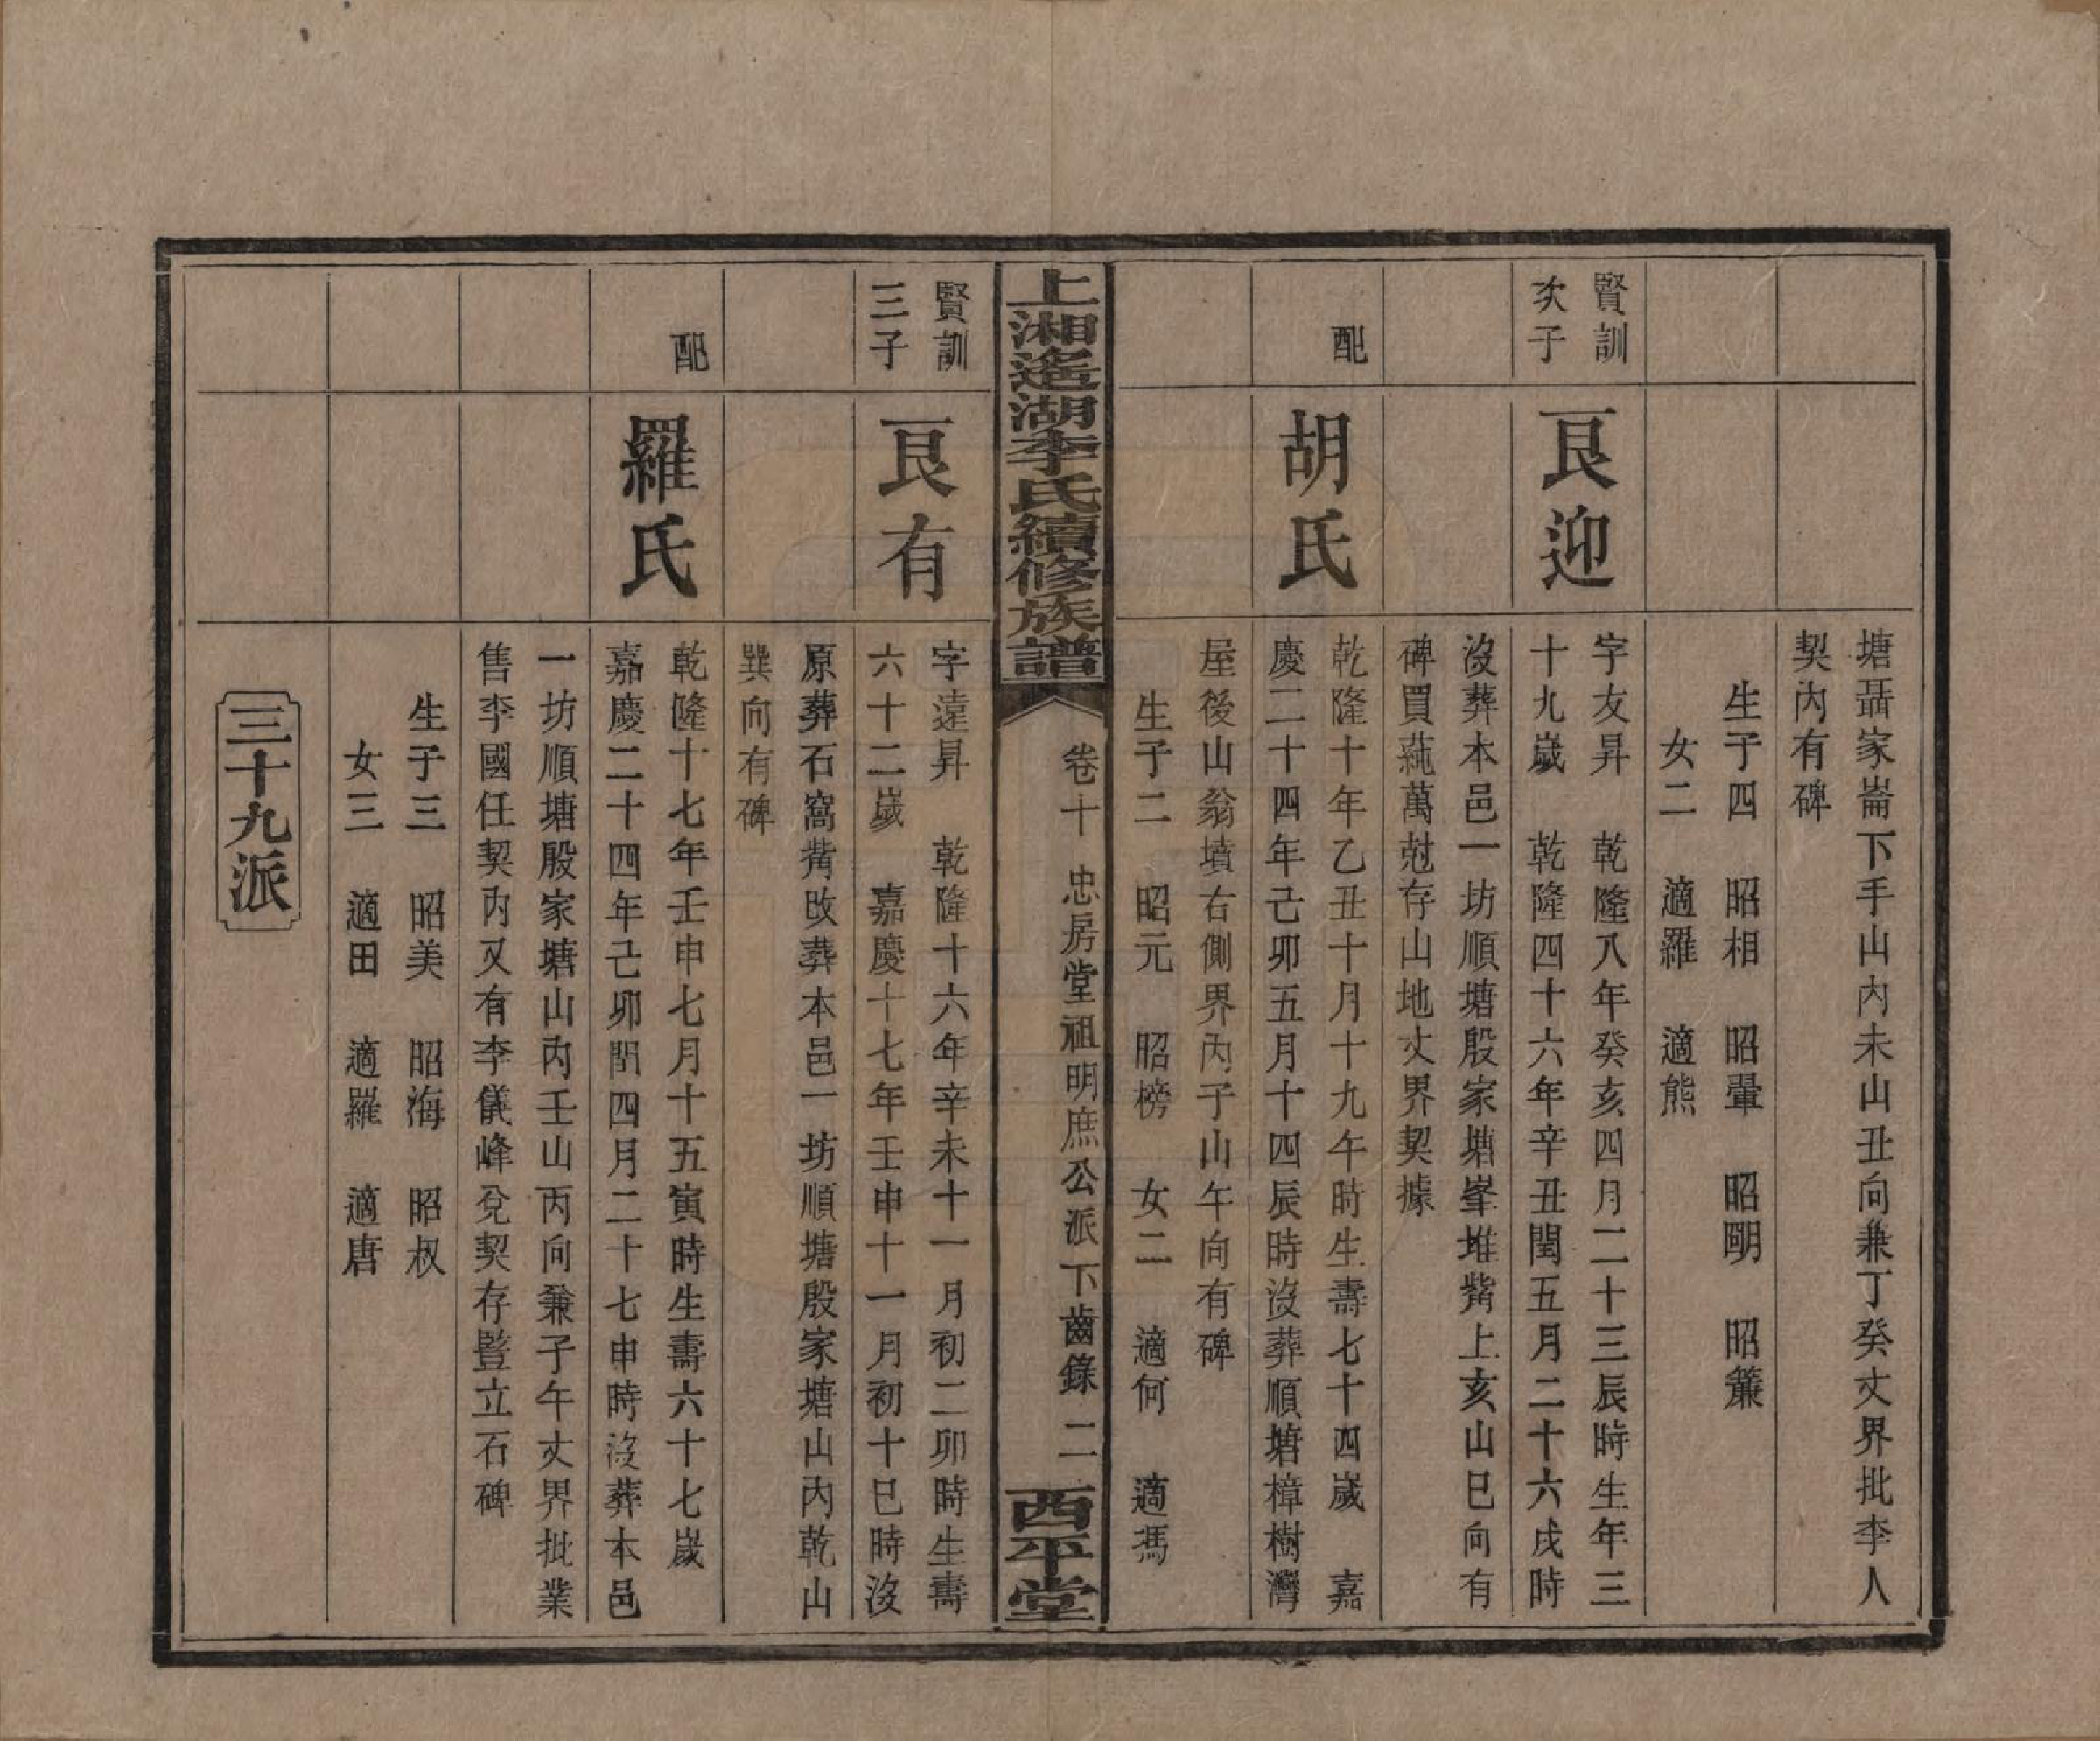 塘聶家崙下手山內未山丑向兼丁癸丈界批李人
契內有碑
生子四 昭相 昭翬 昭明 昭簾
女二 適羅 適熊
賢訓
次子
良迎
字友昇 乾隆八年癸亥四月二十三辰時生年三
十九歲 乾隆四十六年辛丑閏五月二十六戌時
沒葬本邑一坊順塘殷家塘峯堆背上亥山巳向有
碑買蒓萬尅存山地丈界契據
配
胡氏
乾隆十年乙丑十月十九午時生壽七十四歲 嘉
慶二十四年己卯五月十四辰時沒葬順塘樟樹灣
屋後山翁墳右側界內子山午向有碑
生子二 昭元 昭榜 女二 適何 適馮
上湘遙湖李氏續修族譜
卷十 忠房堂祖明庶公派下齒錄 二
西平堂
賢訓
三子
良有
字遠昇 乾隆十六年辛未十一月初二卯時生壽
六十二歲 嘉慶十七年壬申十一月初十巳時沒
原葬石窩背改葬本邑一坊順塘殷家塘山內乾山
巽向有碑
配
羅氏
乾隆十七年壬申七月十五寅時生壽六十七歲
嘉慶二十四年己卯閏四月二十七申時沒葬本邑
一坊順塘殷家塘山內壬山丙向兼子午丈界批業
售李國任契內又有李儀峰兌契存豎立石碑
生子三 昭美 昭海 昭叔
女三 適田 適羅 適唐
三十九派